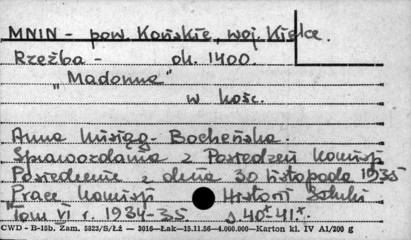 MNIN - pow. Końskie, woj. Kielce.
Rzeźba - ok. 1400.
"Madonna"
w kośc.
Anna Misiąg-Bocheńska.
Sprawozdania z Posiedzeń Komisji
Posiedzenie z dnia 30 listopada 1935
Prace Komisji Historii Sztuki
Tom VI r. 1934-35 s. 40* 41*.
CWD - B-15b. Zam. 5823/S/Łż — 2016—Łak—15.11.56—4.000.000—Karton kl. IV A1/200 g